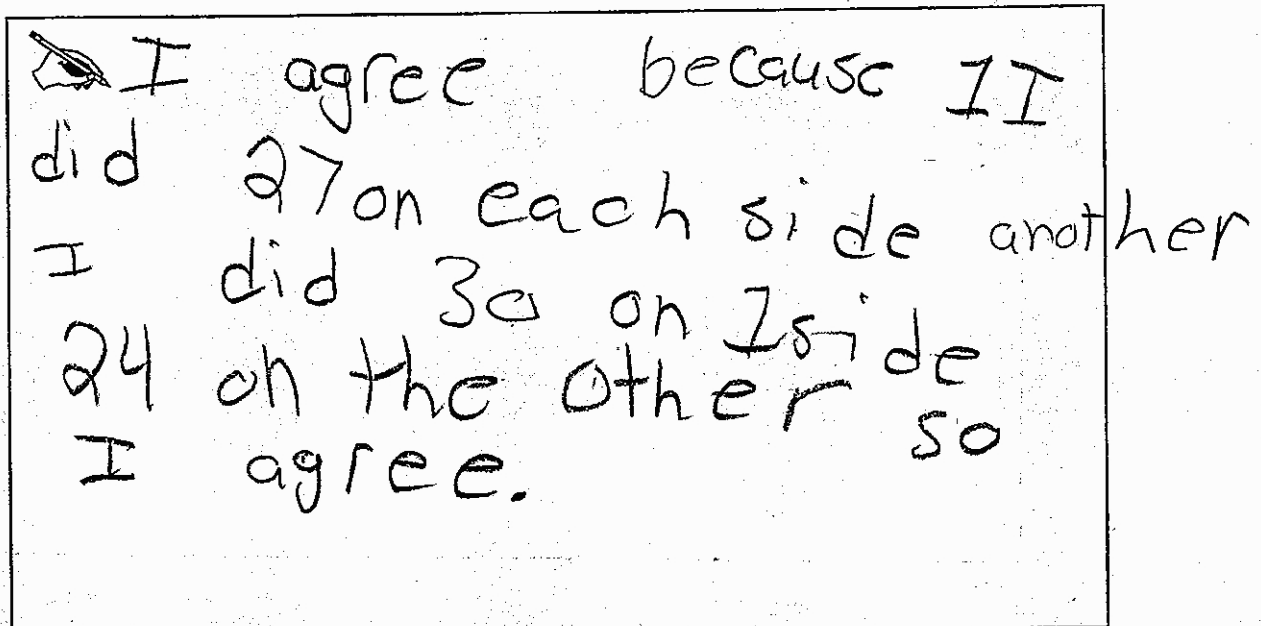 I agree because 1 I
did 27 on each side another
I did 30 on 1 side
24 on the other so
I agree.